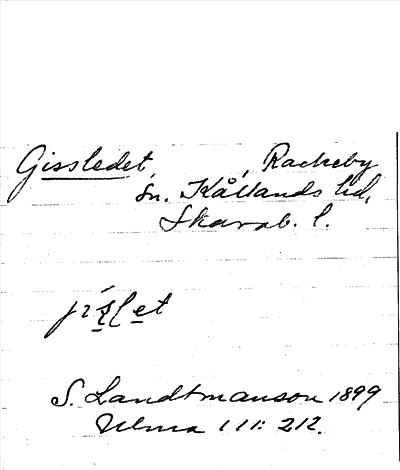 Gissledet, Rackeby
sn. Kållands hd,
Skarab. l.
S. Landtmanson 1899
Ulma 111: 212.